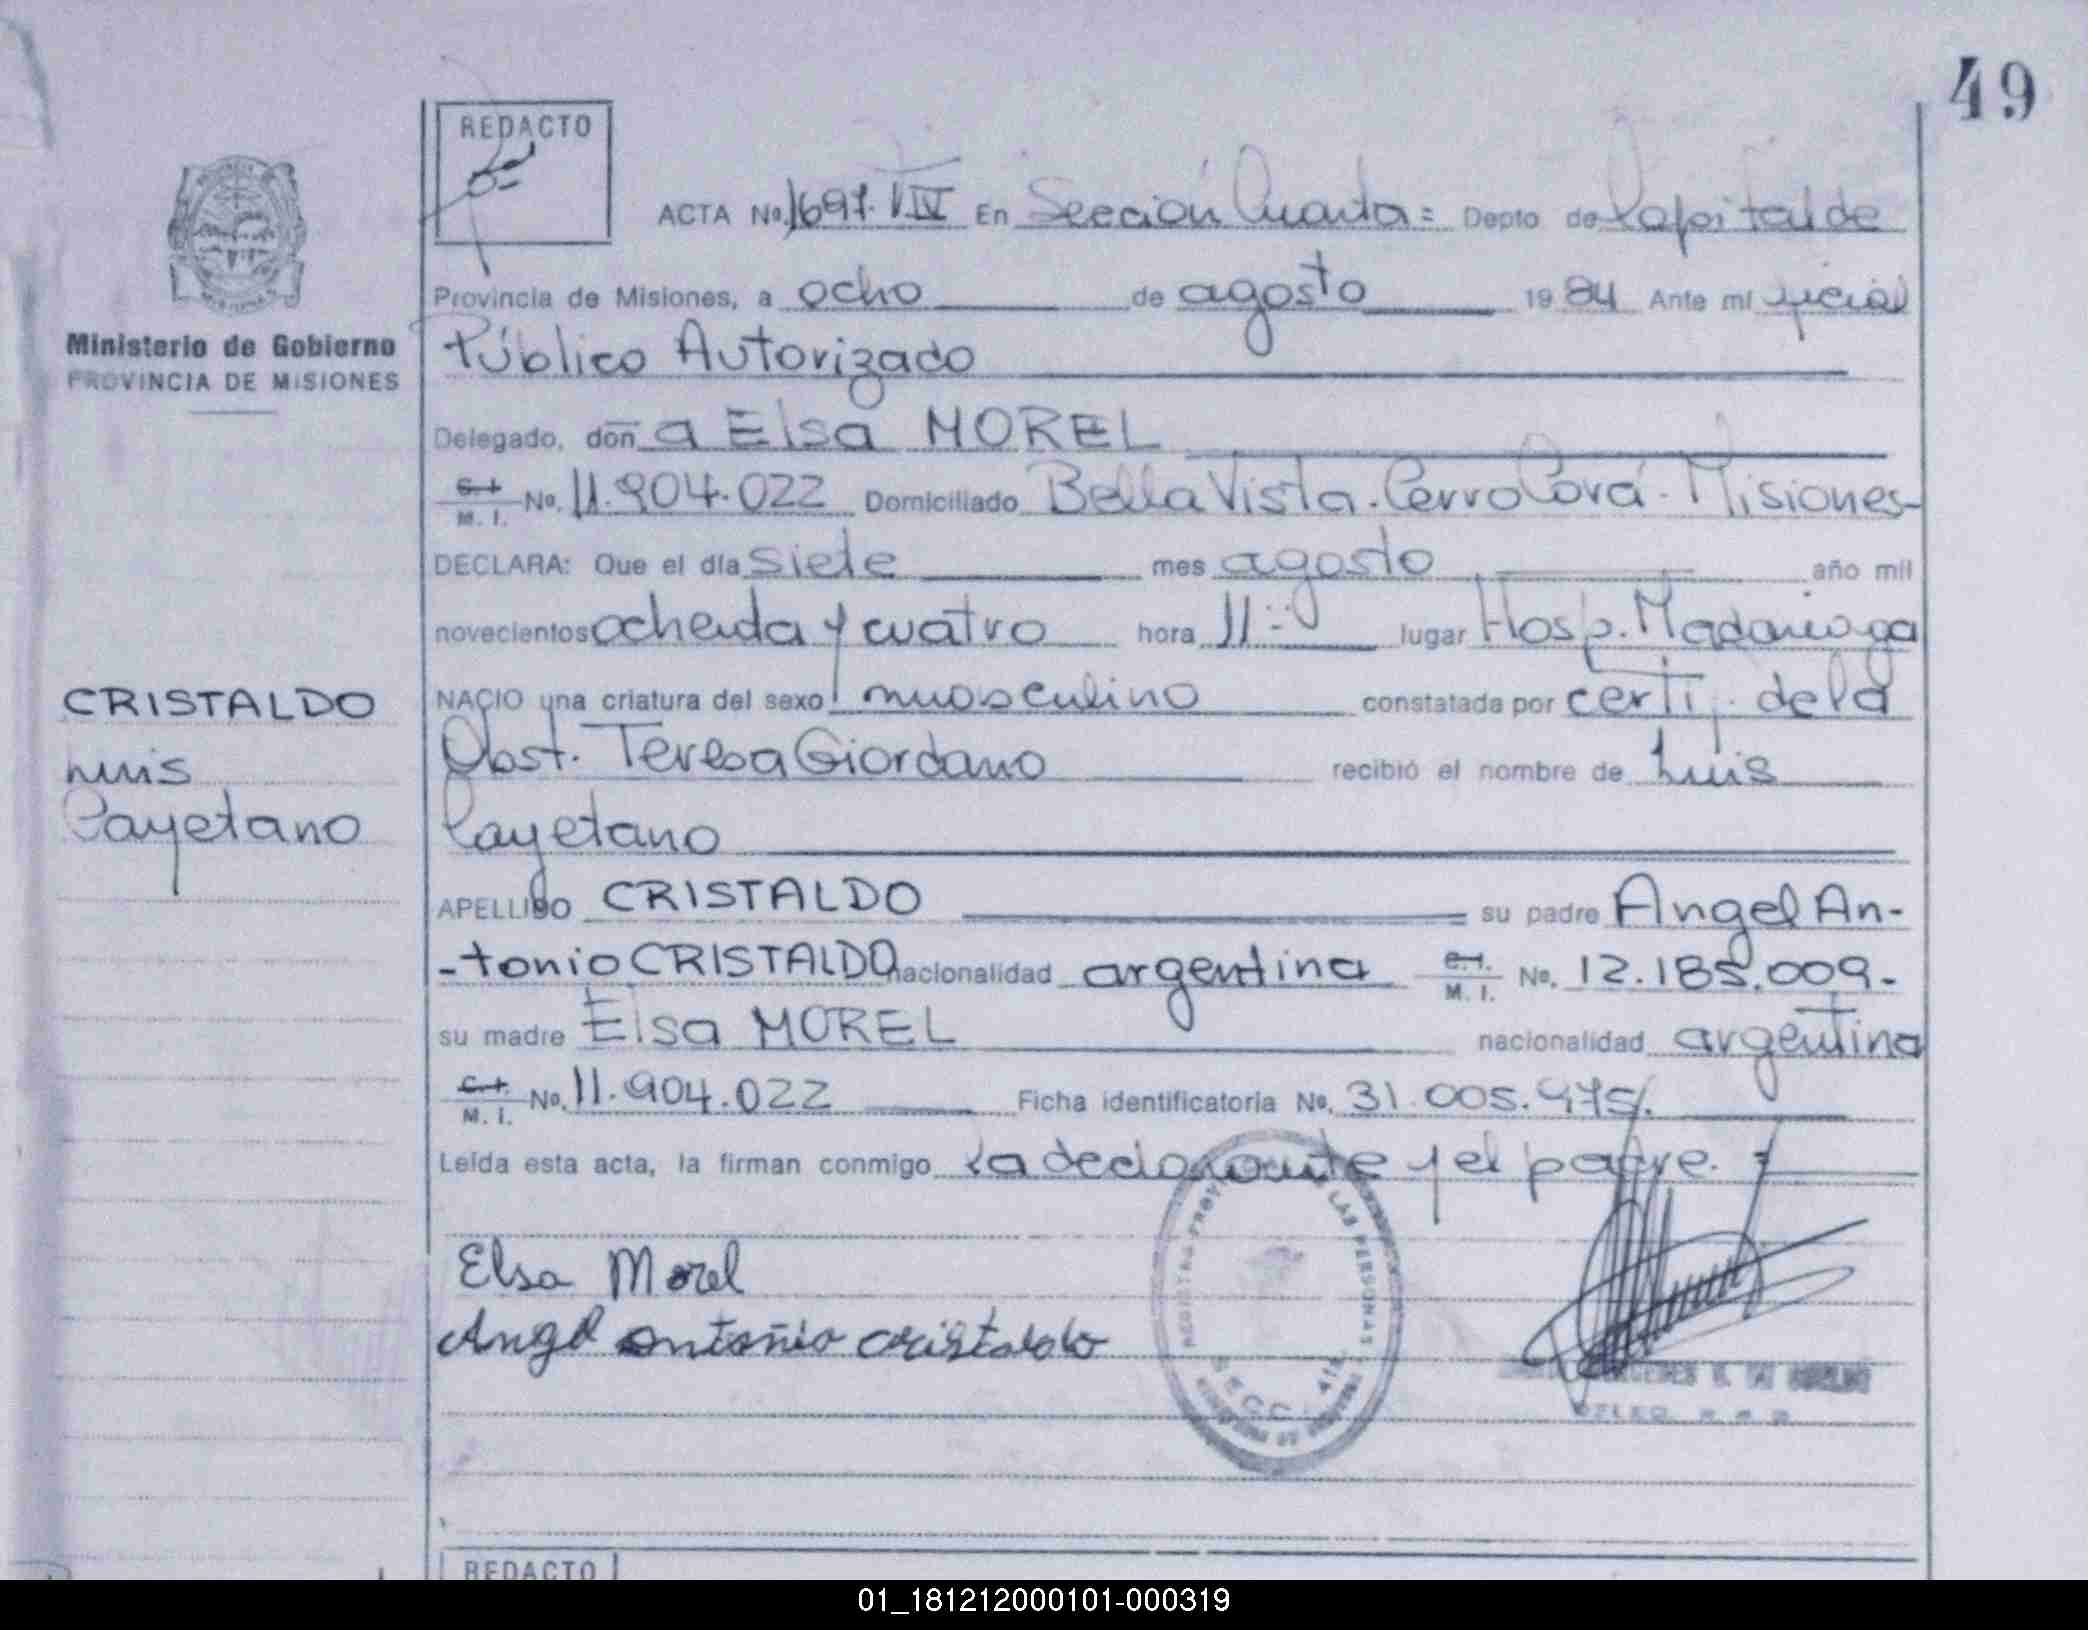 49
REDACTO
ACTA No. 1697. T IV En Sección Cuarta = Depto de Capital de
Provincia de Misiones, a ocho de agosto 1984 Ante mí
Público Autorizado
Ministerio de Gobierno
PROVINCIA DE MISIONES
Delegado, doñ a Elsa MOREL
C.I. M. I. No. 11.904.022 Domiciliado Bella Vista. Cerro Corá. Misiones
DECLARA: Que el día siete mes agosto año mil
novecientos ochenta y cuatro hora 11 lugar Hosp. Madariaga
NACIO una criatura del sexo masculino constatada por certif. de la
Obst. Teresa Giordano recibió el nombre de Luis
Cayetano
CRISTALDO
Luis
Cayetano
APELLIDO CRISTALDO su padre Angel An-
-tonio CRISTALDO nacionalidad argentina C.I. M. I. No. 12.185.009.
su madre Elsa MOREL nacionalidad argentina
C.I. M. I. No. 11.904.022 Ficha identificatoria No. 31.005.475/.
Leída esta acta, la firman conmigo la declarante y el padre.
Elsa Morel
Angel Antonio Cristaldo
LAS PERSONAS
SECC. 4ta.
REDACTO
01_181212000101-000319